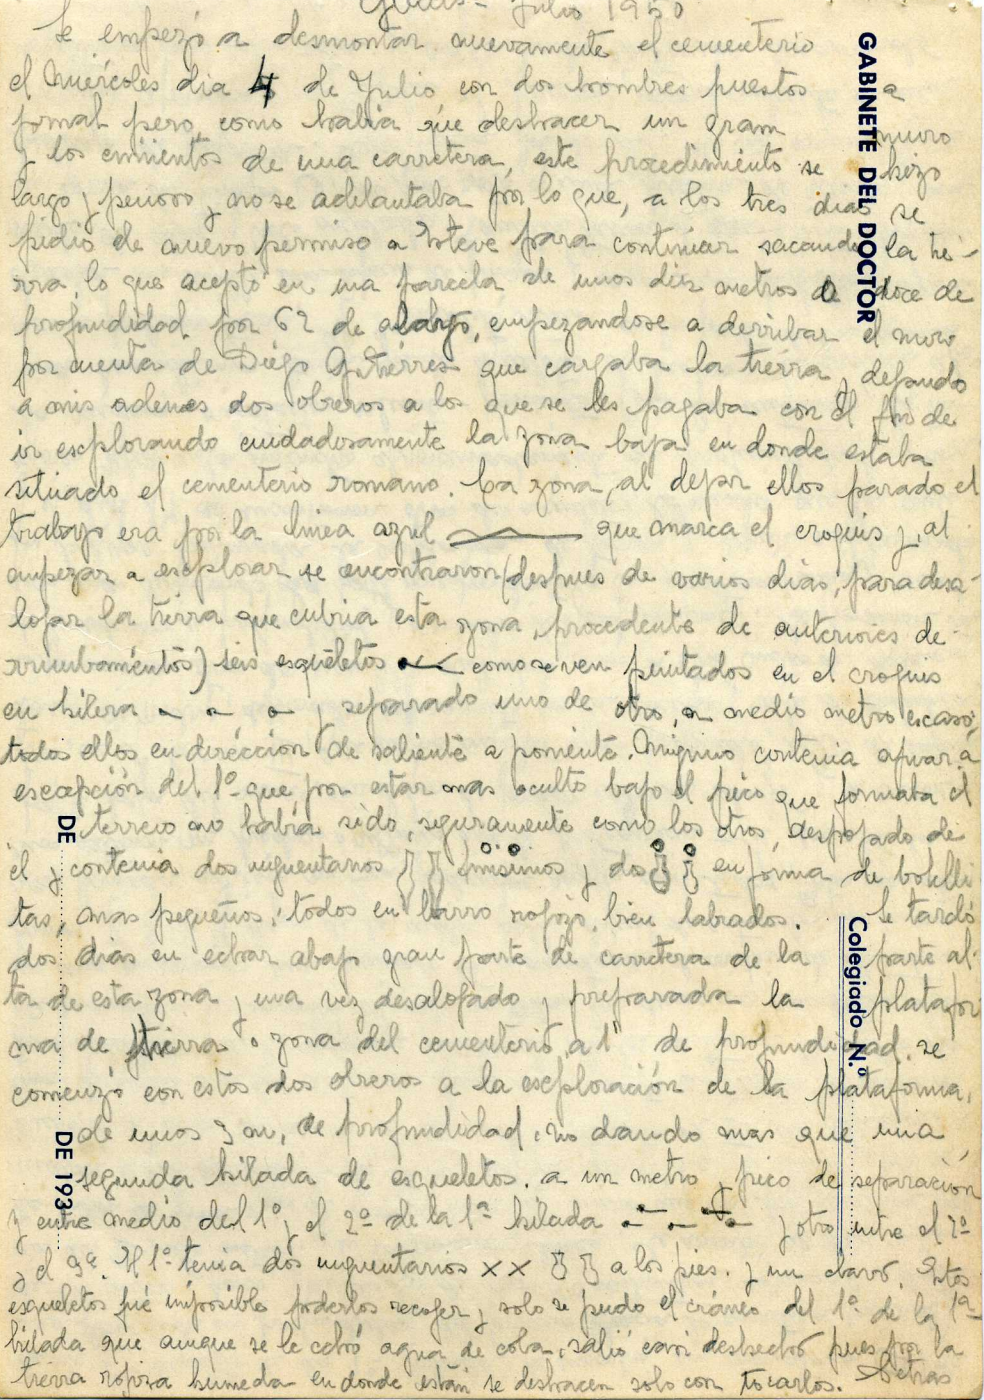 Julio 1950
Se empezó a desmontar nuevamente el cementerio
el Miércoles dia 4 de Julio con dos hombres puestos a
jornal pero, como habia que deshacer un gram muro
y los cimientos de una carretera, este procedimiento se hizo
largo y penoso y no se adelantaba por lo que, a los tres dias se
pidio de nuevo permiso a Esteve para continuar sacando la tie-
rra, lo que aceptó en una parcela de unos diez metros o doce de
profundidad por 62 de alargo, empezandose a derribar el muro
por cuenta de Diego Gutierres que cargaba la tierra y dejando
a mis ordenes dos obreros a los que se les pagaba con el fin de
ir esplorando cuidadosamente la zona baja en donde estaba
situado el cementerio romano. La zona, al dejar ellos parado el
trabajo era por la linea azul que marca el croquis y, al
empezar a esplorar se encontraron (despues de varios dias, para desa-
lojar la tierra que cubria esta zona, procedente de anteriores de-
rrumbamientos) seis esqueletos como se ven pintados en el croquis
en hilera y separado uno de otro, a medio metro escaso,
todos ellos en dirección de saliente a poniente. Ninguno contenia ajuar a
escepción del 1º que, por estar mas oculto bajo el pico que formaba el
terreno no habia sido, seguramente como los otros, despojado de
él y contenia dos unguentarios finisimos y dos en forma de botelli
tas, mas pequeños, todos en barro rojizo, bien labrados. Se tardó
dos dias en echar abajo gran parte de carretera de la parte al-
ta de esta zona y una vez desalojado y preparada la platafor
ma de tierra o zona del cementerio, a 1" de profundidad. se
comenzó con estos dos obreros a la esploración de la plataforma,
de unos 3 m, de profundidad, no dando mas que una
segunda hilada de esqueletos, a un metro y pico de separación
y entre medio del 1º y el 2º de la 1ª hilada y otro entre el 2º
y el 3º. El 1º tenia dos unguentarios x x a los pies. y un clavo. Estos
esqueletos fué imposible poderlos recoger y solo se pudo el cráneo del 1º de la 1ª
hilada que aunque se le echó agua de cola, salió casi deshecho pues por la
tierra rojiza humeda en donde están se deshacen solo con tocarlos. Detras
GABINETE DEL DOCTOR
Colegiado N.º
DE DE 193